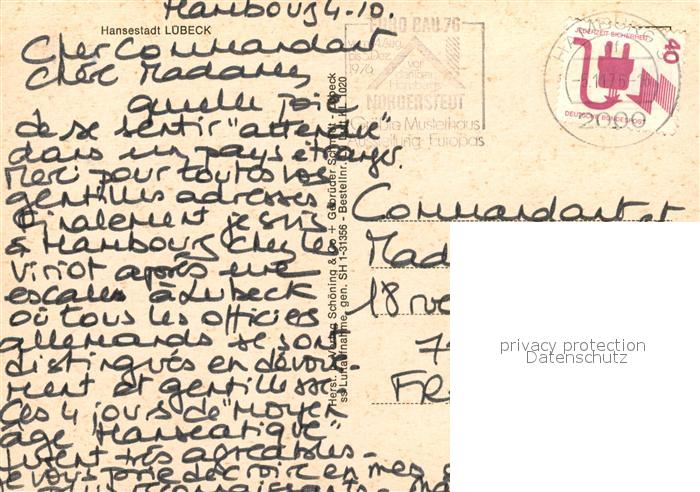 Hambourg 4.10.
Hansestadt LÜBECK
Cher Commandant
Chère Madame,
quelle joie
de se sentir "attendue"
dans un pays étranger.
Merci pour toutes vos
gentilles adresses.
Finalement je suis
à Hambourg chez les
Viriot après une
escale à Lubeck
où tous les officiers
allemands se sont
distingués en dévoue-
ment et gentillesse
Ces 4 jours de "moyen
âge Hanséatique"
furent très agréables-
Je vous prie de croire en mes
plus
EURO BAU 76
bis 5. Dez.
1976
vor
den Toren
Hamburgs
NORDERSTEDT
Größte Musterhaus
Ausstellung Europas
HAMBURG
2000
JEDERZEIT SICHERHEIT
40
DEUTSCHE BUNDESPOST
Herst. u. Verlag Schöning & Co + Gebrüder Schmidt - Lübeck
ss Luftaufnahme, gen. SH 1-31356 - Bestellnr. 1020
Commandant et
Mad
18 rue
7
FR
privacy protection
Datenschutz